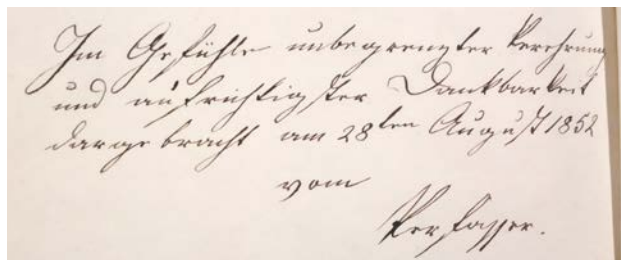 Im Gefühle unbegrenzter Verehrung
und aufrichtigster Dankbarkeit
dargebracht am 28ten August 1852
vom
Verfasser.